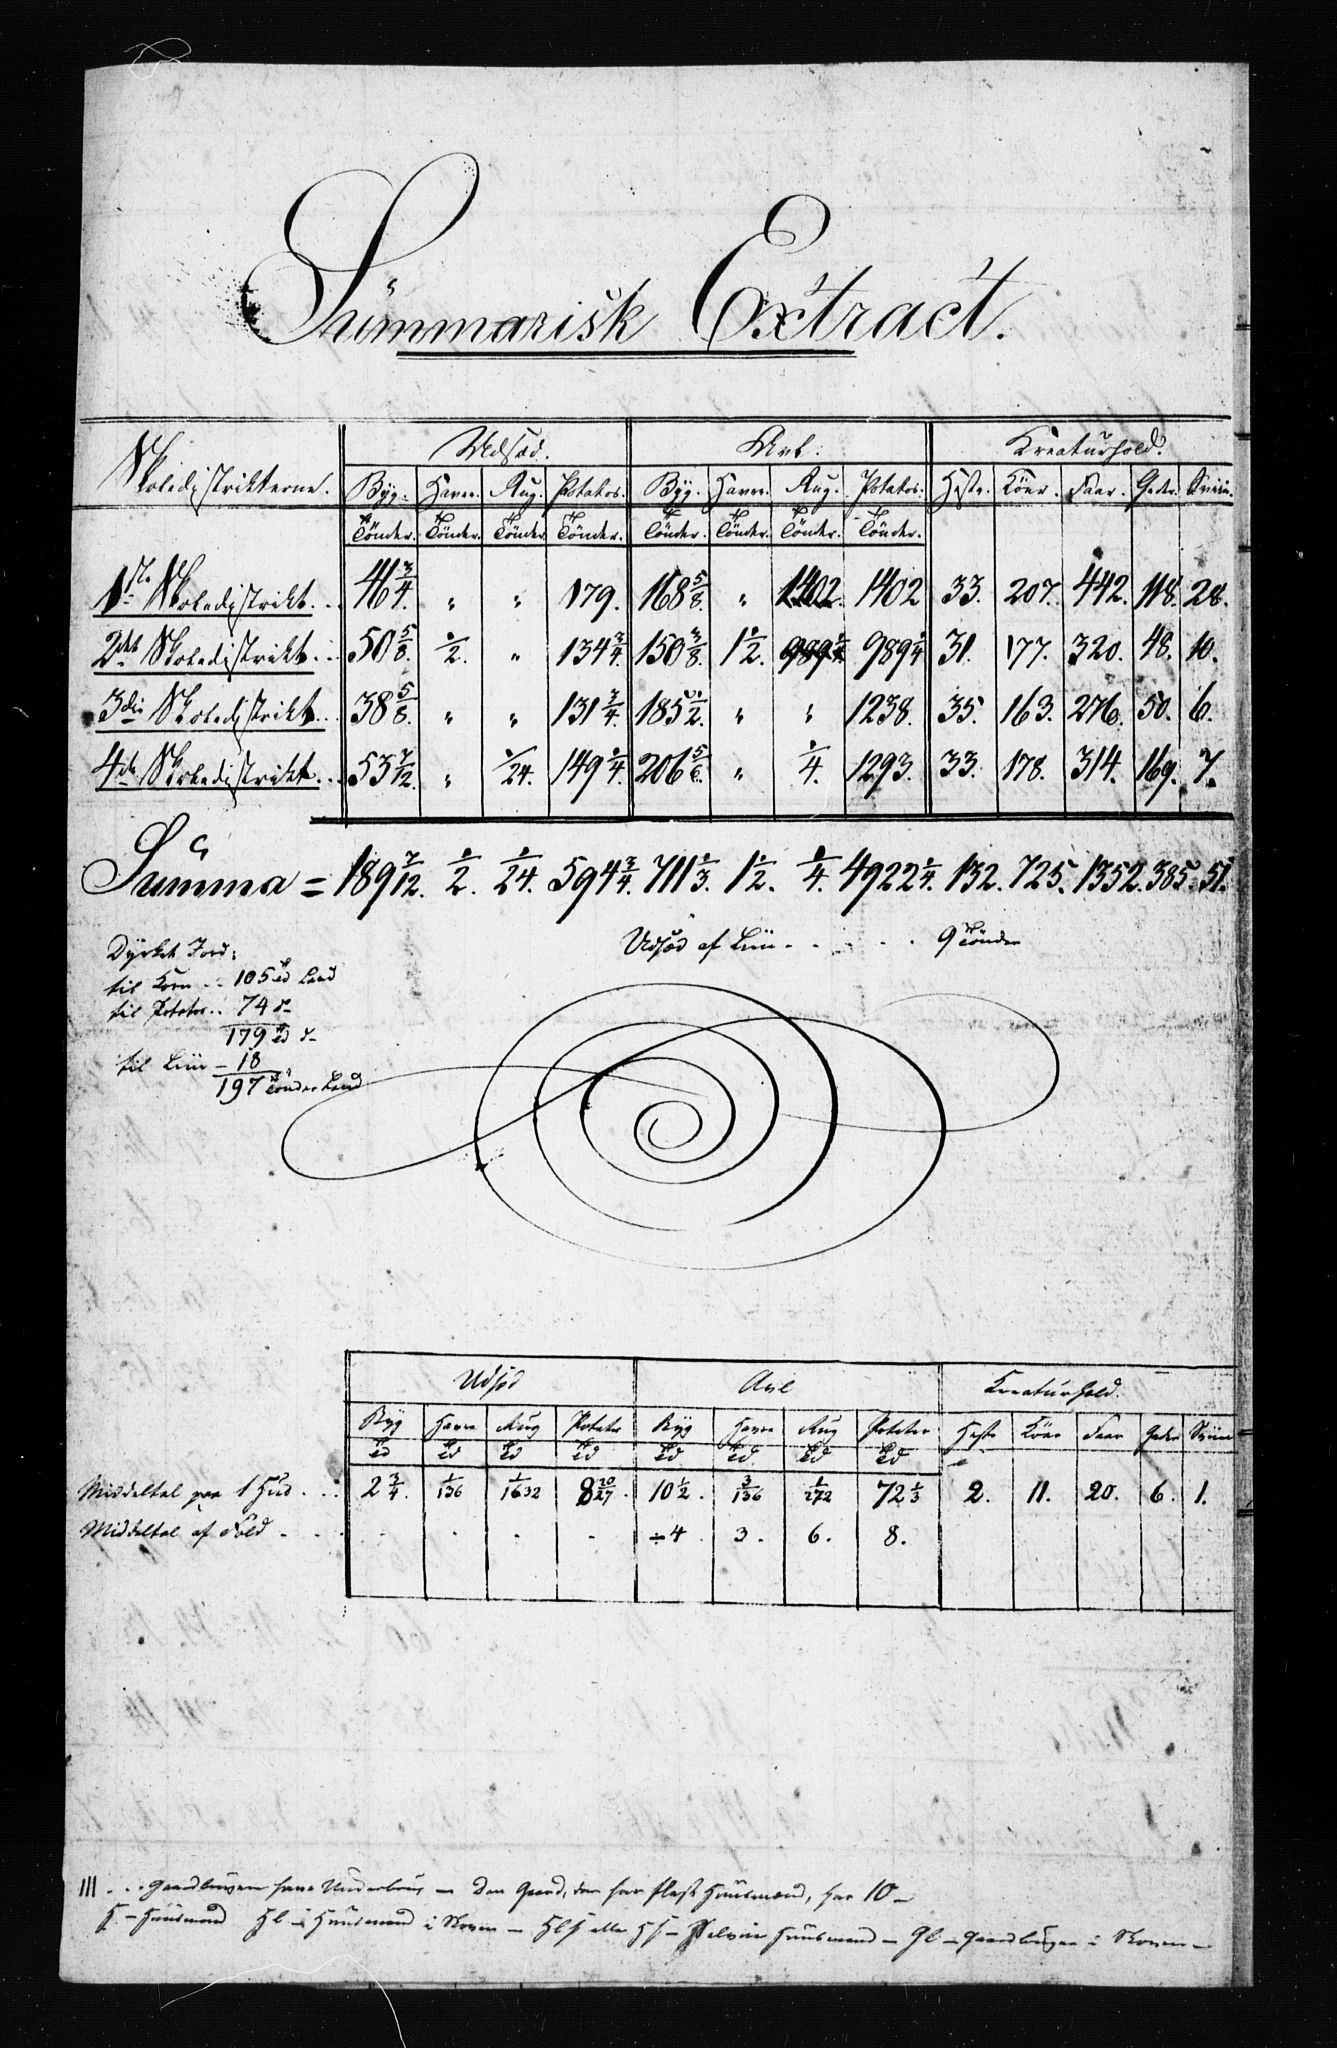 Summarisk Extract.
Skoledistrikterne. Udsæd. Avl. Kreaturhold.
Byg. Havre. Rug. Potatos. Byg. Havre. Rug. Potatos. Heste. Köer. Faar. Geder. Sviin.
Tönder. Tönder. Tönder. Tönder. Tönder. Tönder. Tönder. Tönder.
1ste Skoledistrikt. 46 3/4 " " 179. 168 5/8. " 1402. 1402 33. 207. 442. 118. 28.
2det Skoledistrikt. 50 5/8. 1/2. " 134 3/4. 150 3/8. 1 1/2. 989 1/4 989 1/4 31. 177. 320. 48. 10.
3die Skoledistrikt. 38 5/8. " " 131 3/4. 185 1/2. " " 1238. 35. 163. 276. 50. 6.
4de Skoledistrikt. 53 7/12. " 1/24. 149 1/4. 206 5/6. " 1/4. 1293. 33. 178. 314. 169. 7.
Summa = 189 7/12. 1/2. 1/24. 594 3/4. 711 1/3. 1 1/2. 1/4. 4922 1/4. 132. 725. 1352. 385. 51.
Udsæd af Liin - - - - 9 Tönder
Dyrket Jord:
til Korn .. 105 Td Land
til Potatos .. 74 d-
179 Td d-
til Liin - 18
197 Tönder Land
Udsæd Avl Kreaturhold.
Byg Havre Rug Potater Byg Havre Rug Potater Heste Köer Faar Geder Sviin
Td Td Td Td Td Td Td Td
Middeltal paa 1 Hud . . . 2 3/4. 1/136 1/1632 8 20/27. 10 1/2. 3/136 1/272 72 1/3 2. 11. 20. 6. 1.
Middeltal af Fold - . . . . . - ÷4. 3. 6. 8.
III . . . Gaardbrugere have Underbrug - Den Gaard, der har flest Huusmænd, har 10 -
H. - Huusmand Hl - Huusmand i Skoven - Hlf eller Hf - Huusmand - Gl - Gaardbruger i Skoven -